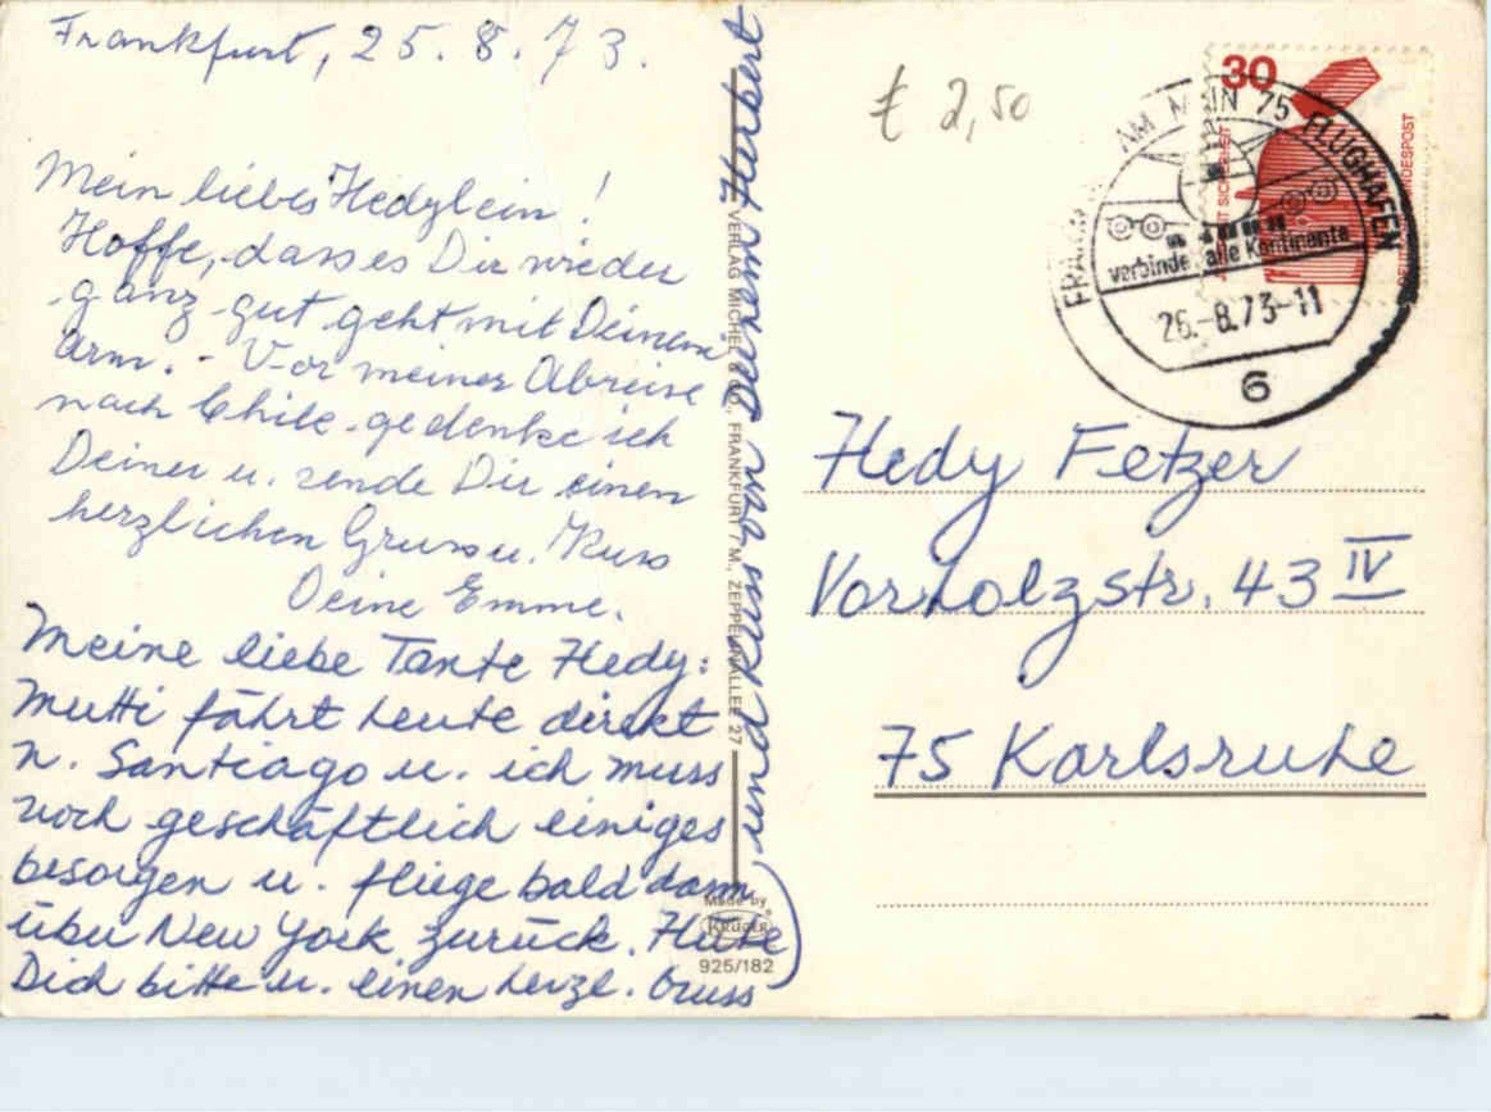 Frankfurt, 25.8.73.
Mein liebes Hedylein!
Hoffe, dass es Dir wieder
ganz gut geht mit Deinem
Arm. - Vor meiner Abreise
nach Chile gedenke ich
Deiner u. sende Dir einen
herzlichen Gruss u. Kuss
Deine Emme.
Meine liebe Tante Hedy:
Mutti fährt heute direkt
n. Santiago u. ich muss
noch geschäftlich einiges
besorgen u. fliege bald dann
über New York zurück. Hüte
Dich bitte u. einen herzl. Gruss
und Kuss von Deinem Herbert
VERLAG MICHEL & CO., FRANKFURT / M., ZEPPELINALLEE 27
Made by
KRÜGER
925/182
€ 2,50
30
DEUTSCHE BUNDESPOST
FRANKFURT AM MAIN 75 FLUGHAFEN
verbindet alle Kontinente
26.-8.73-11
6
Hedy Fetzer
Vorholzstr. 43 IV
75 Karlsruhe